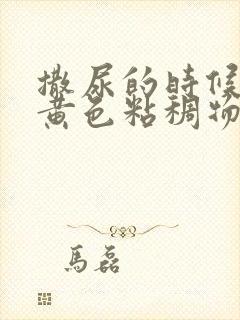 撒尿的時候
黃色粘稠物
馬磊